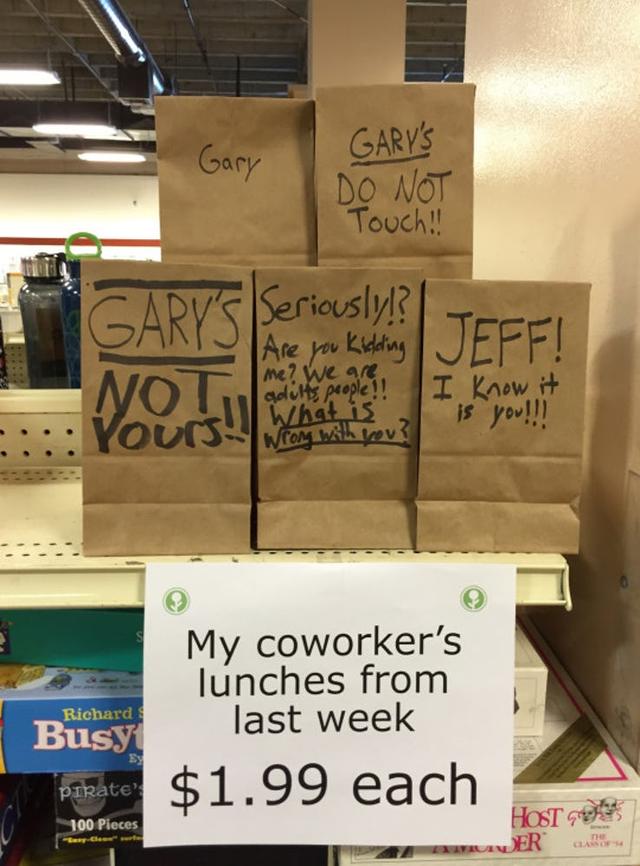 Gary
GARY'S
DO NOT
Touch!!
GARY'S
NOT
Yours!!
Seriously!?
Are you kidding
me? We are
adults people!!
What is
wrong with you?
JEFF!
I know it
is you!!!
My coworker's
lunches from
last week
$1.99 each
Richard S
Busyt
Ey
PIRate's
100 Pieces
"Easy-Clean" surfa
HOST
MURDER
THE
CLASS OF '54